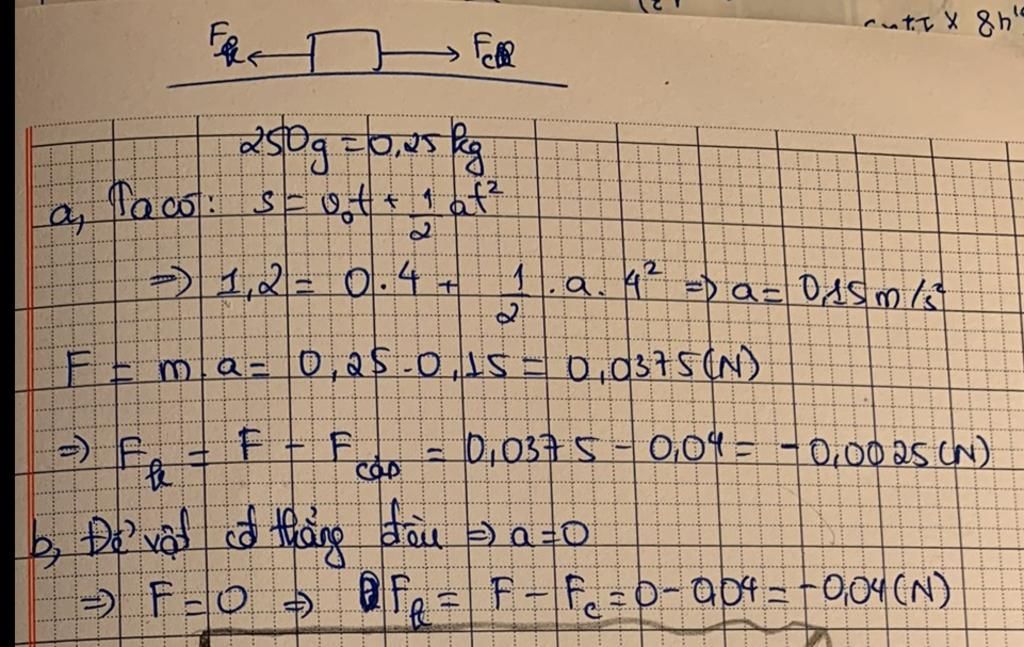 Fk Fcản
250g = 0,25 kg
a, Ta có: s = v₀t + 1/2 at²
=> 1,2 = 0.4 + 1/2 .a. 4² => a = 0,15 m/s²
F = m.a = 0,25.0,15 = 0,0375(N)
=> Fk = F - Fcản = 0,0375 - 0,04 = -0,0025(N)
b, Để vật cđ thẳng đều => a=0
=> F = 0 => Fk = F - Fc = 0 - 0,04 = -0,04(N)